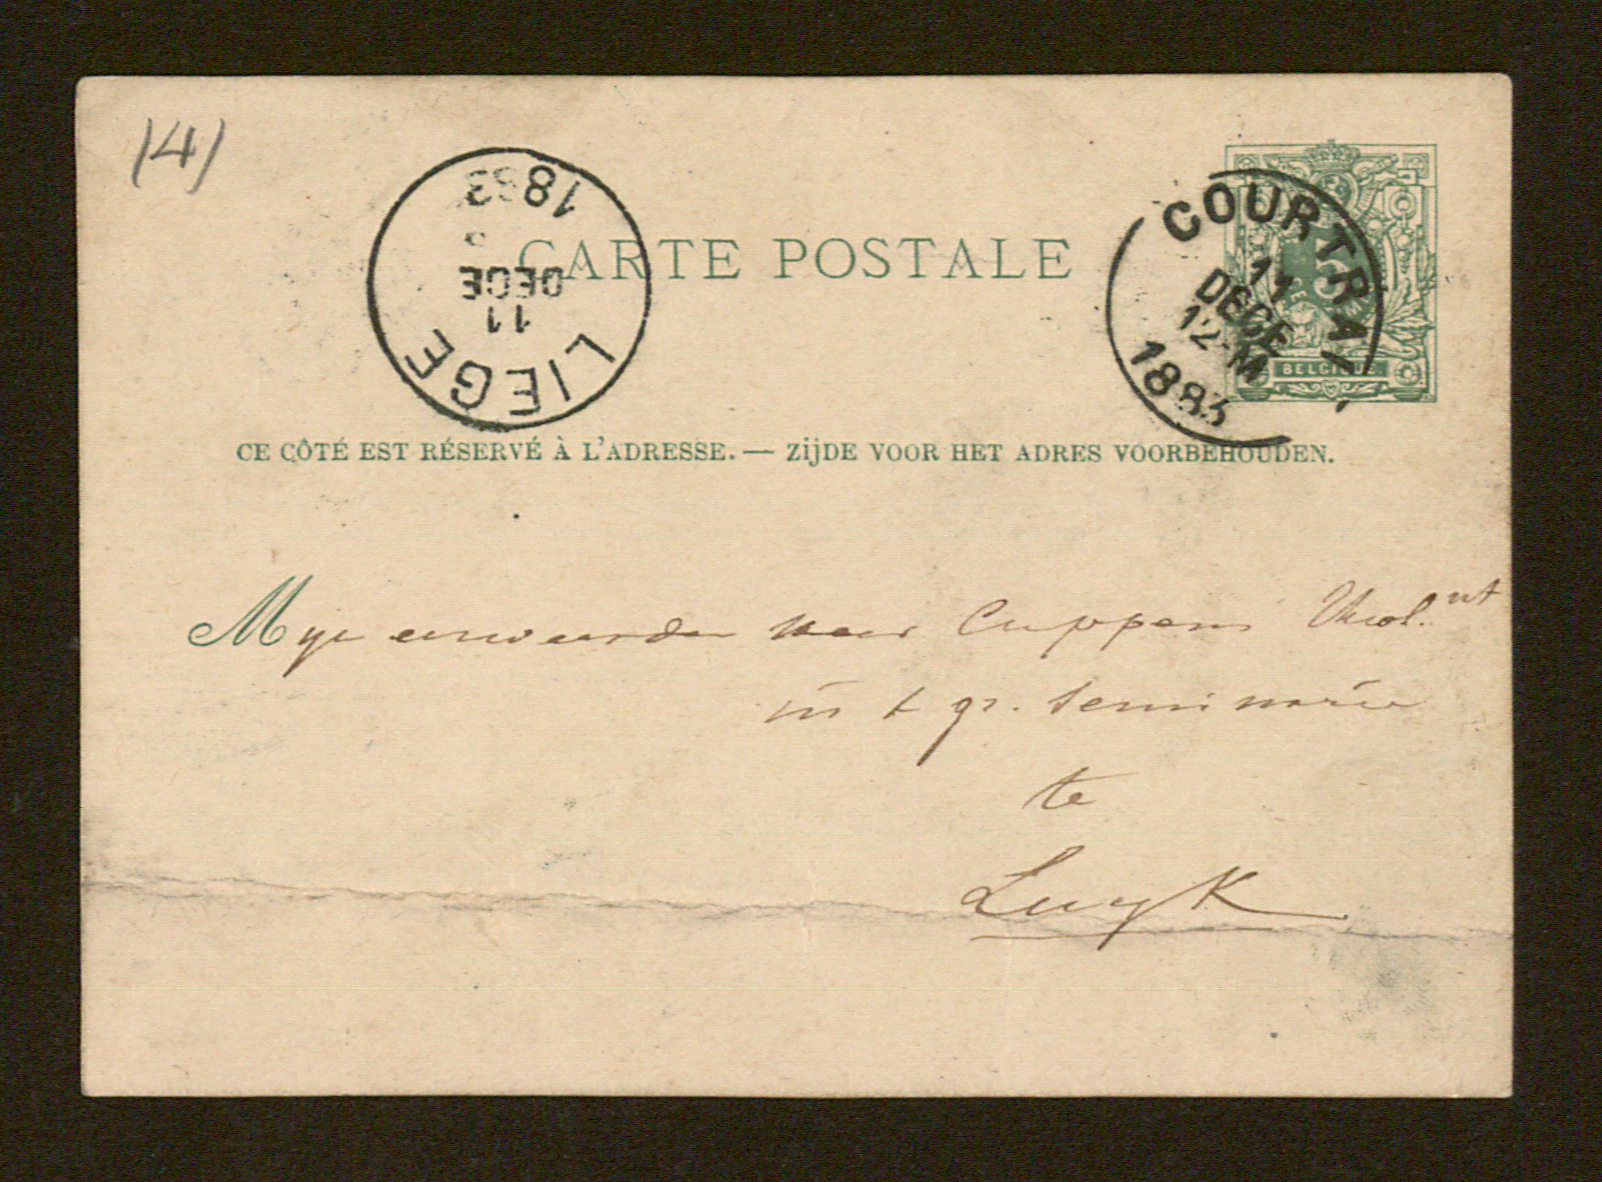 (4)
1883
11
DECE
LIEGE
CARTE POSTALE
COURTRAI
11
DECE
12-M
1883
5
BELGIQUE
CE CÔTÉ EST RÉSERVÉ À L'ADRESSE. — ZIJDE VOOR HET ADRES VOORBEHOUDEN.
Myn eerweerden heer Cuppens Theol.nt
in t gr. seminarie
te
Luyk